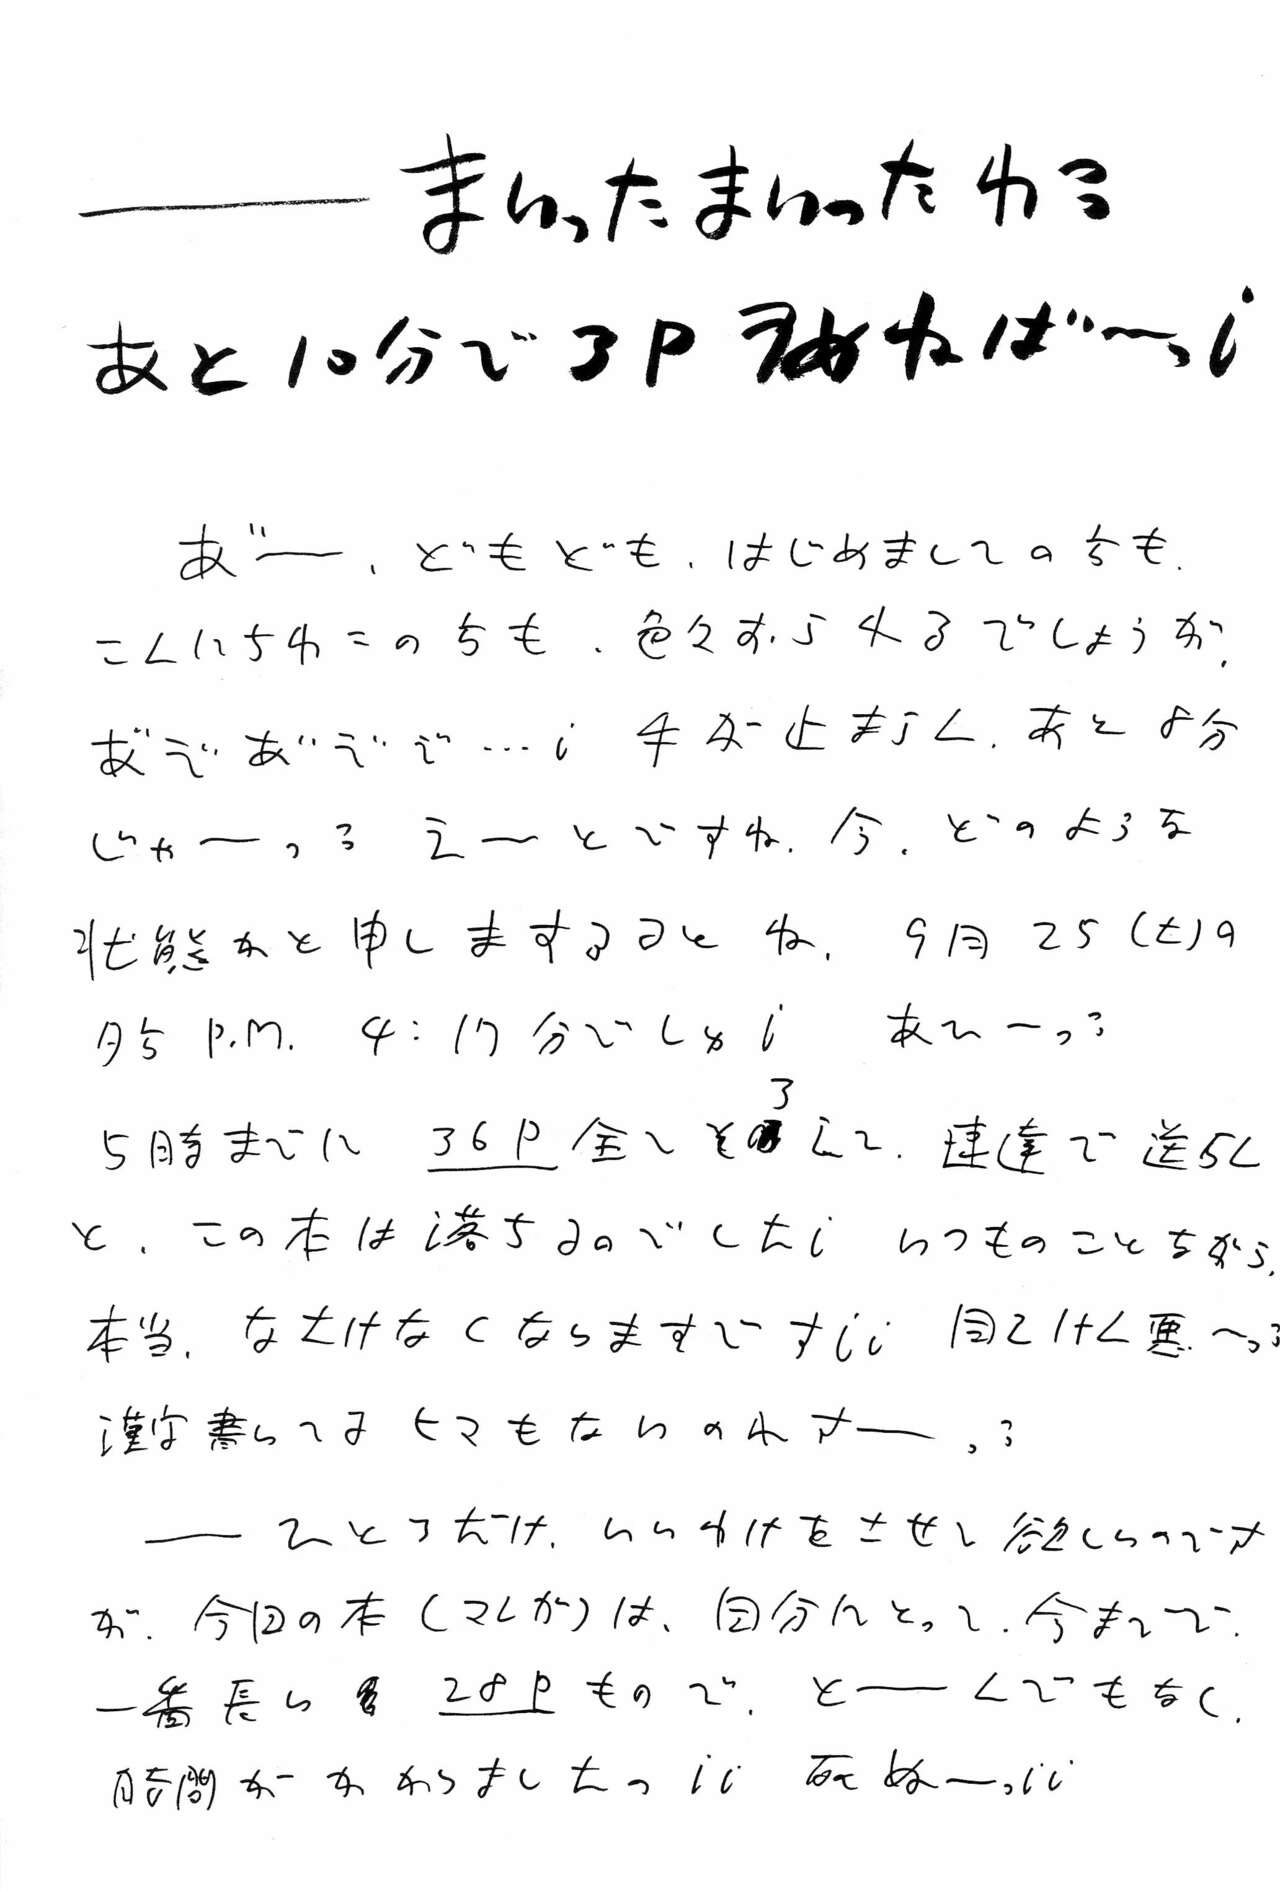 ──まいったまいったわっ
あと10分で3P 埋めねば〜っ!
あ゛─、どもども、はじめましての方も、
こんにちわこの方も、色々おられるでしょうが、
あ゛で あ゛でで…! 手が止まらん、あと8分
じゃーっっ えーとですね、今、どのような
状態かと申しまするとね、9月25(土)の
夕方 P.M. 4:17分でしゅ! あひーっっ
5時までに 36P 全てそろえて、速達で送らん
と、この本は落ちるのでした! いつものことながら、
本当、なさけなくなりますです!! 自こけん悪〜っっ
漢字書いてるヒマもないのれすー、っ
──ひとつだけ、いいわけをさせて欲しいのです
が、今回の本(マンガ)は、自分にとって、今まで、
一番長い 28P もので、と──んでもなく、
時間がかかりましたっ!! 死ぬーっ!!